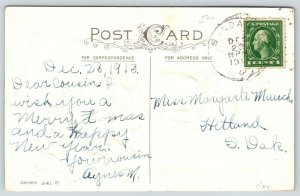 POST CARD
FOR CORRESPONDENCE
FOR ADDRESS ONLY
Dec. 23, 1913.
Dear Cousin: I
wish you a
Merry X mas
and a Happy
New Year.
Your cousin
Agnes M.
Miss Margarite Mauch
Hetland
S. Dak.
CENT
Series 241 B